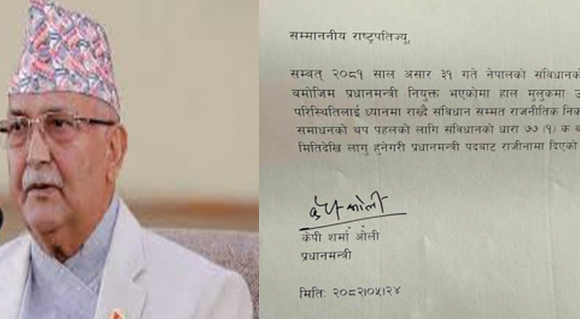 सम्माननीय राष्ट्रपतिज्यू,
सम्बत् २०८१ साल असार ३१ गते नेपालको संविधानको
बमोजिम प्रधानमन्त्री नियुक्त भएकोमा हाल मुलुकमा
परिस्थितिलाई ध्यानमा राख्दै संविधान सम्मत राजनीतिक
समाधानको थप पहलको लागि संविधानको धारा ७७ (१) क
मितिदेखि लागु हुनेगरी प्रधानमन्त्री पदबाट राजीनामा दिएको
केपी ओली
केपी शर्मा ओली
प्रधानमन्त्री
मितिः २०८२।०५।२४